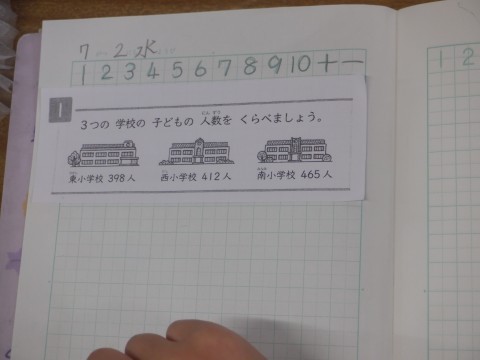 7 2 水
1 2 3 4 5 6 7 8 9 10 十 一
1
3つの 学校の 子どもの 人数を くらべましょう。
東小学校 398人 西小学校 412人 南小学校 465人
1 2